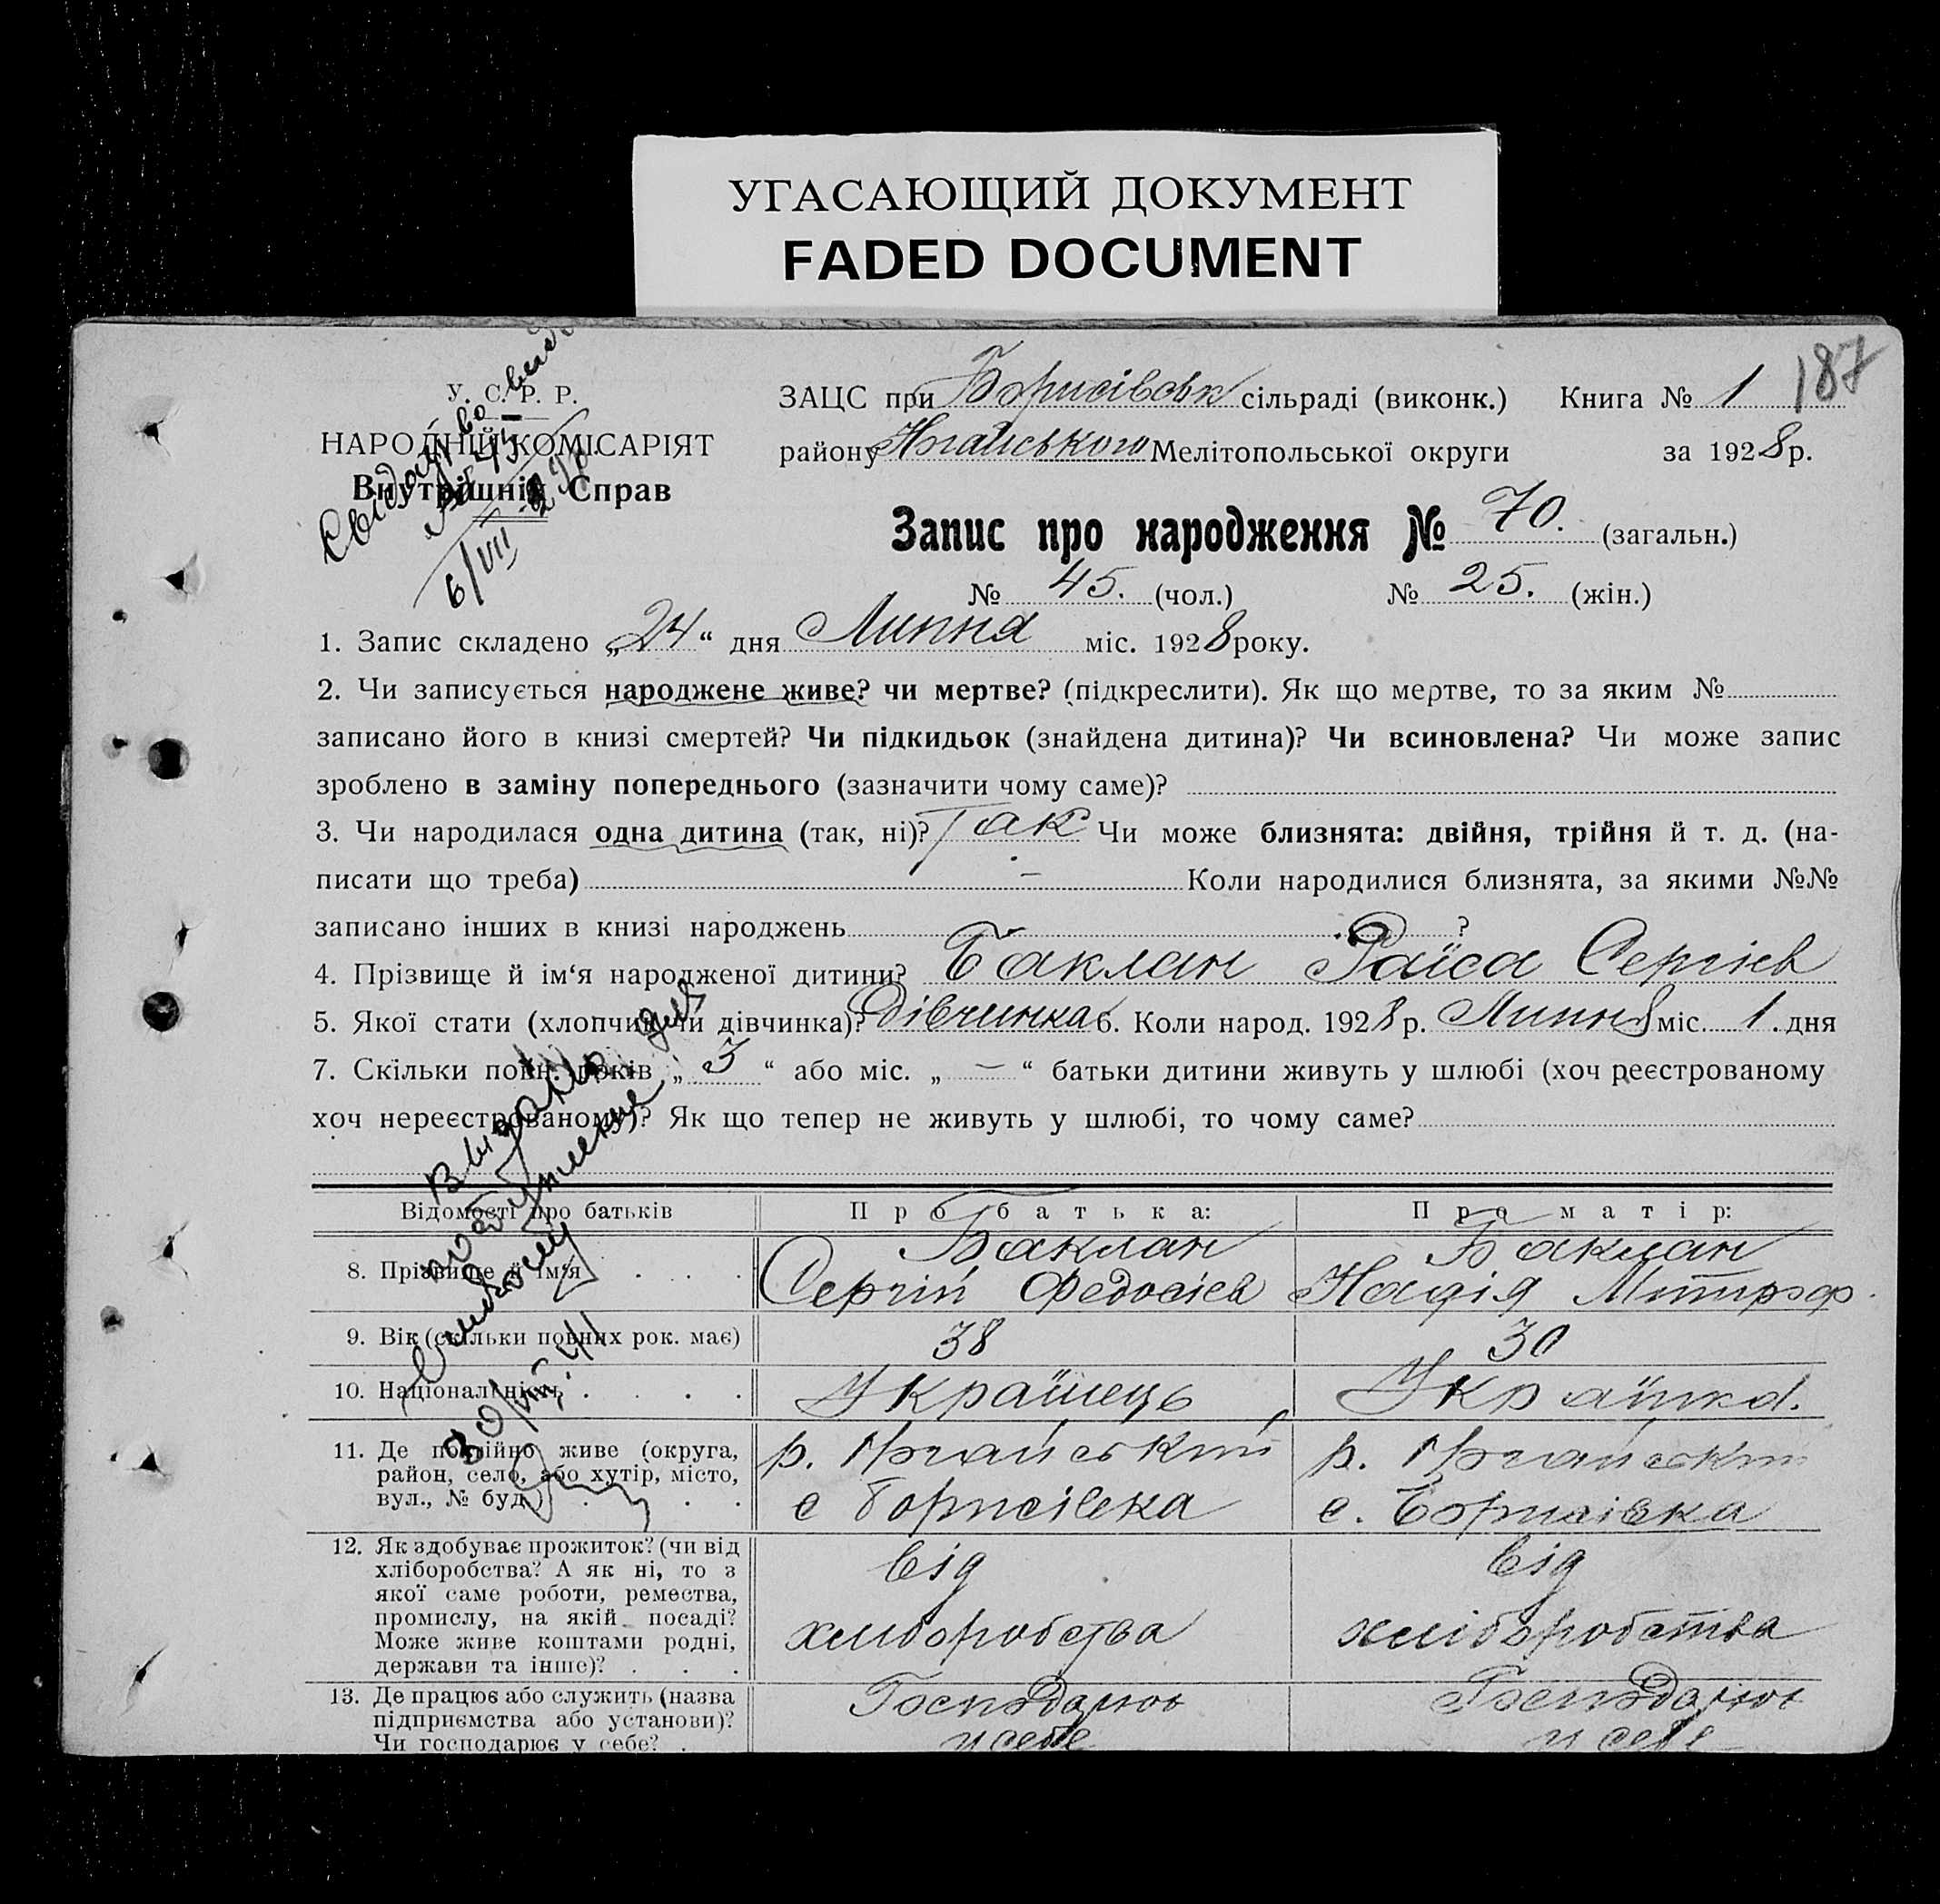 УГАСАЮЩИЙ ДОКУМЕНТ
FADED DOCUMENT
187
У. С. Р. Р.
НАРОДНІЙ КОМІСАРІЯТ
Внутрішніх Справ
ЗАЦС при Борисівськ сільраді (виконк.) Книга № 1
району Ногайського Мелітопольської округи за 1928 р.
Запис про народження № 70. (загальн.)
№ 45. (чол.) № 25. (жін.)
1. Запис складено „24“ дня Липня міс. 1928 року.
2. Чи записується народжене живе? чи мертве? (підкреслити). Як що мертве, то за яким №
записано його в книзі смертей? Чи підкидьок (знайдена дитина)? Чи всиновлена? Чи може запис
зроблено в заміну попереднього (зазначити чому саме)?
3. Чи народилася одна дитина (так, ні)? Так Чи може близнята: двійня, трійня й т. д. (на-
писати що треба) — Коли народилися близнята, за якими №№
записано інших в книзі народжень ?
4. Прізвище й ім‘я народженої дитини? Баклан Раїса Сергієв
5. Якої стати (хлопчик чи дівчинка)? Дівчинка 6. Коли народ. 1928 р. Липня міс. 1. дня
7. Скільки повн. років „3“ або міс. „—“ батьки дитини живуть у шлюбі (хоч реєстрованому
хоч нереєстрованому)? Як що тепер не живуть у шлюбі, то чому саме?
Відомості про батьків Про батька: Про матір:
8. Прізвище й ім‘я Баклан Сергій Федосієв Баклан Надія Митроф.
9. Вік (скільки повних рок. має) 38 30
10. Національність Українець Українка.
11. Де постійно живе (округа,
район, село, або хутір, місто,
вул., № буд.)
р. Ногайський р. Ногайський
с Борисівка с. Борисівка
12. Як здобуває прожиток? (чи від
хліборобства? А як ні, то з
якої саме роботи, ремества,
промислу, на якій посаді?
Може живе коштами родні,
держави та інше)?
від від
хліборобства хліборобства
13. Де працює або служить (назва
підприємства або установи)?
Чи господарює у себе?
Господарює Господарює
у себе у себе
Свідоцтво
№ 45
6/VII
Выдано для
30/VIII 41